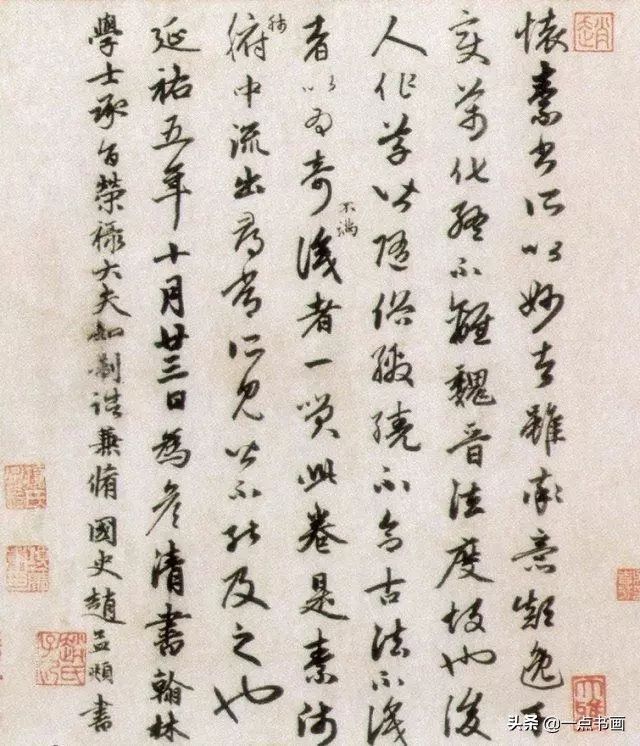 懷素書所以妙者雖率意顛逸千
變萬化終不離魏晉法度故也後
人作草皆隨俗繳繞不合古法不識
者以為奇不滿識者一笑此卷是素師
肺腑中流出尋常所見皆不能及之也
延祐五年十月廿三日為彥清書翰林
學士承旨榮祿大夫知制誥兼脩國史趙孟頫書
趙氏子昂
大雅
头条 @一点书画